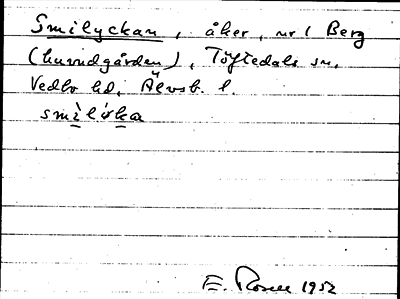 Smilyckan, åker, nr 1 Berg
(huvudgården), Töftedals sn,
Vedbo hd, Älvsb. l.
smìlýka
E. Rosell 1952